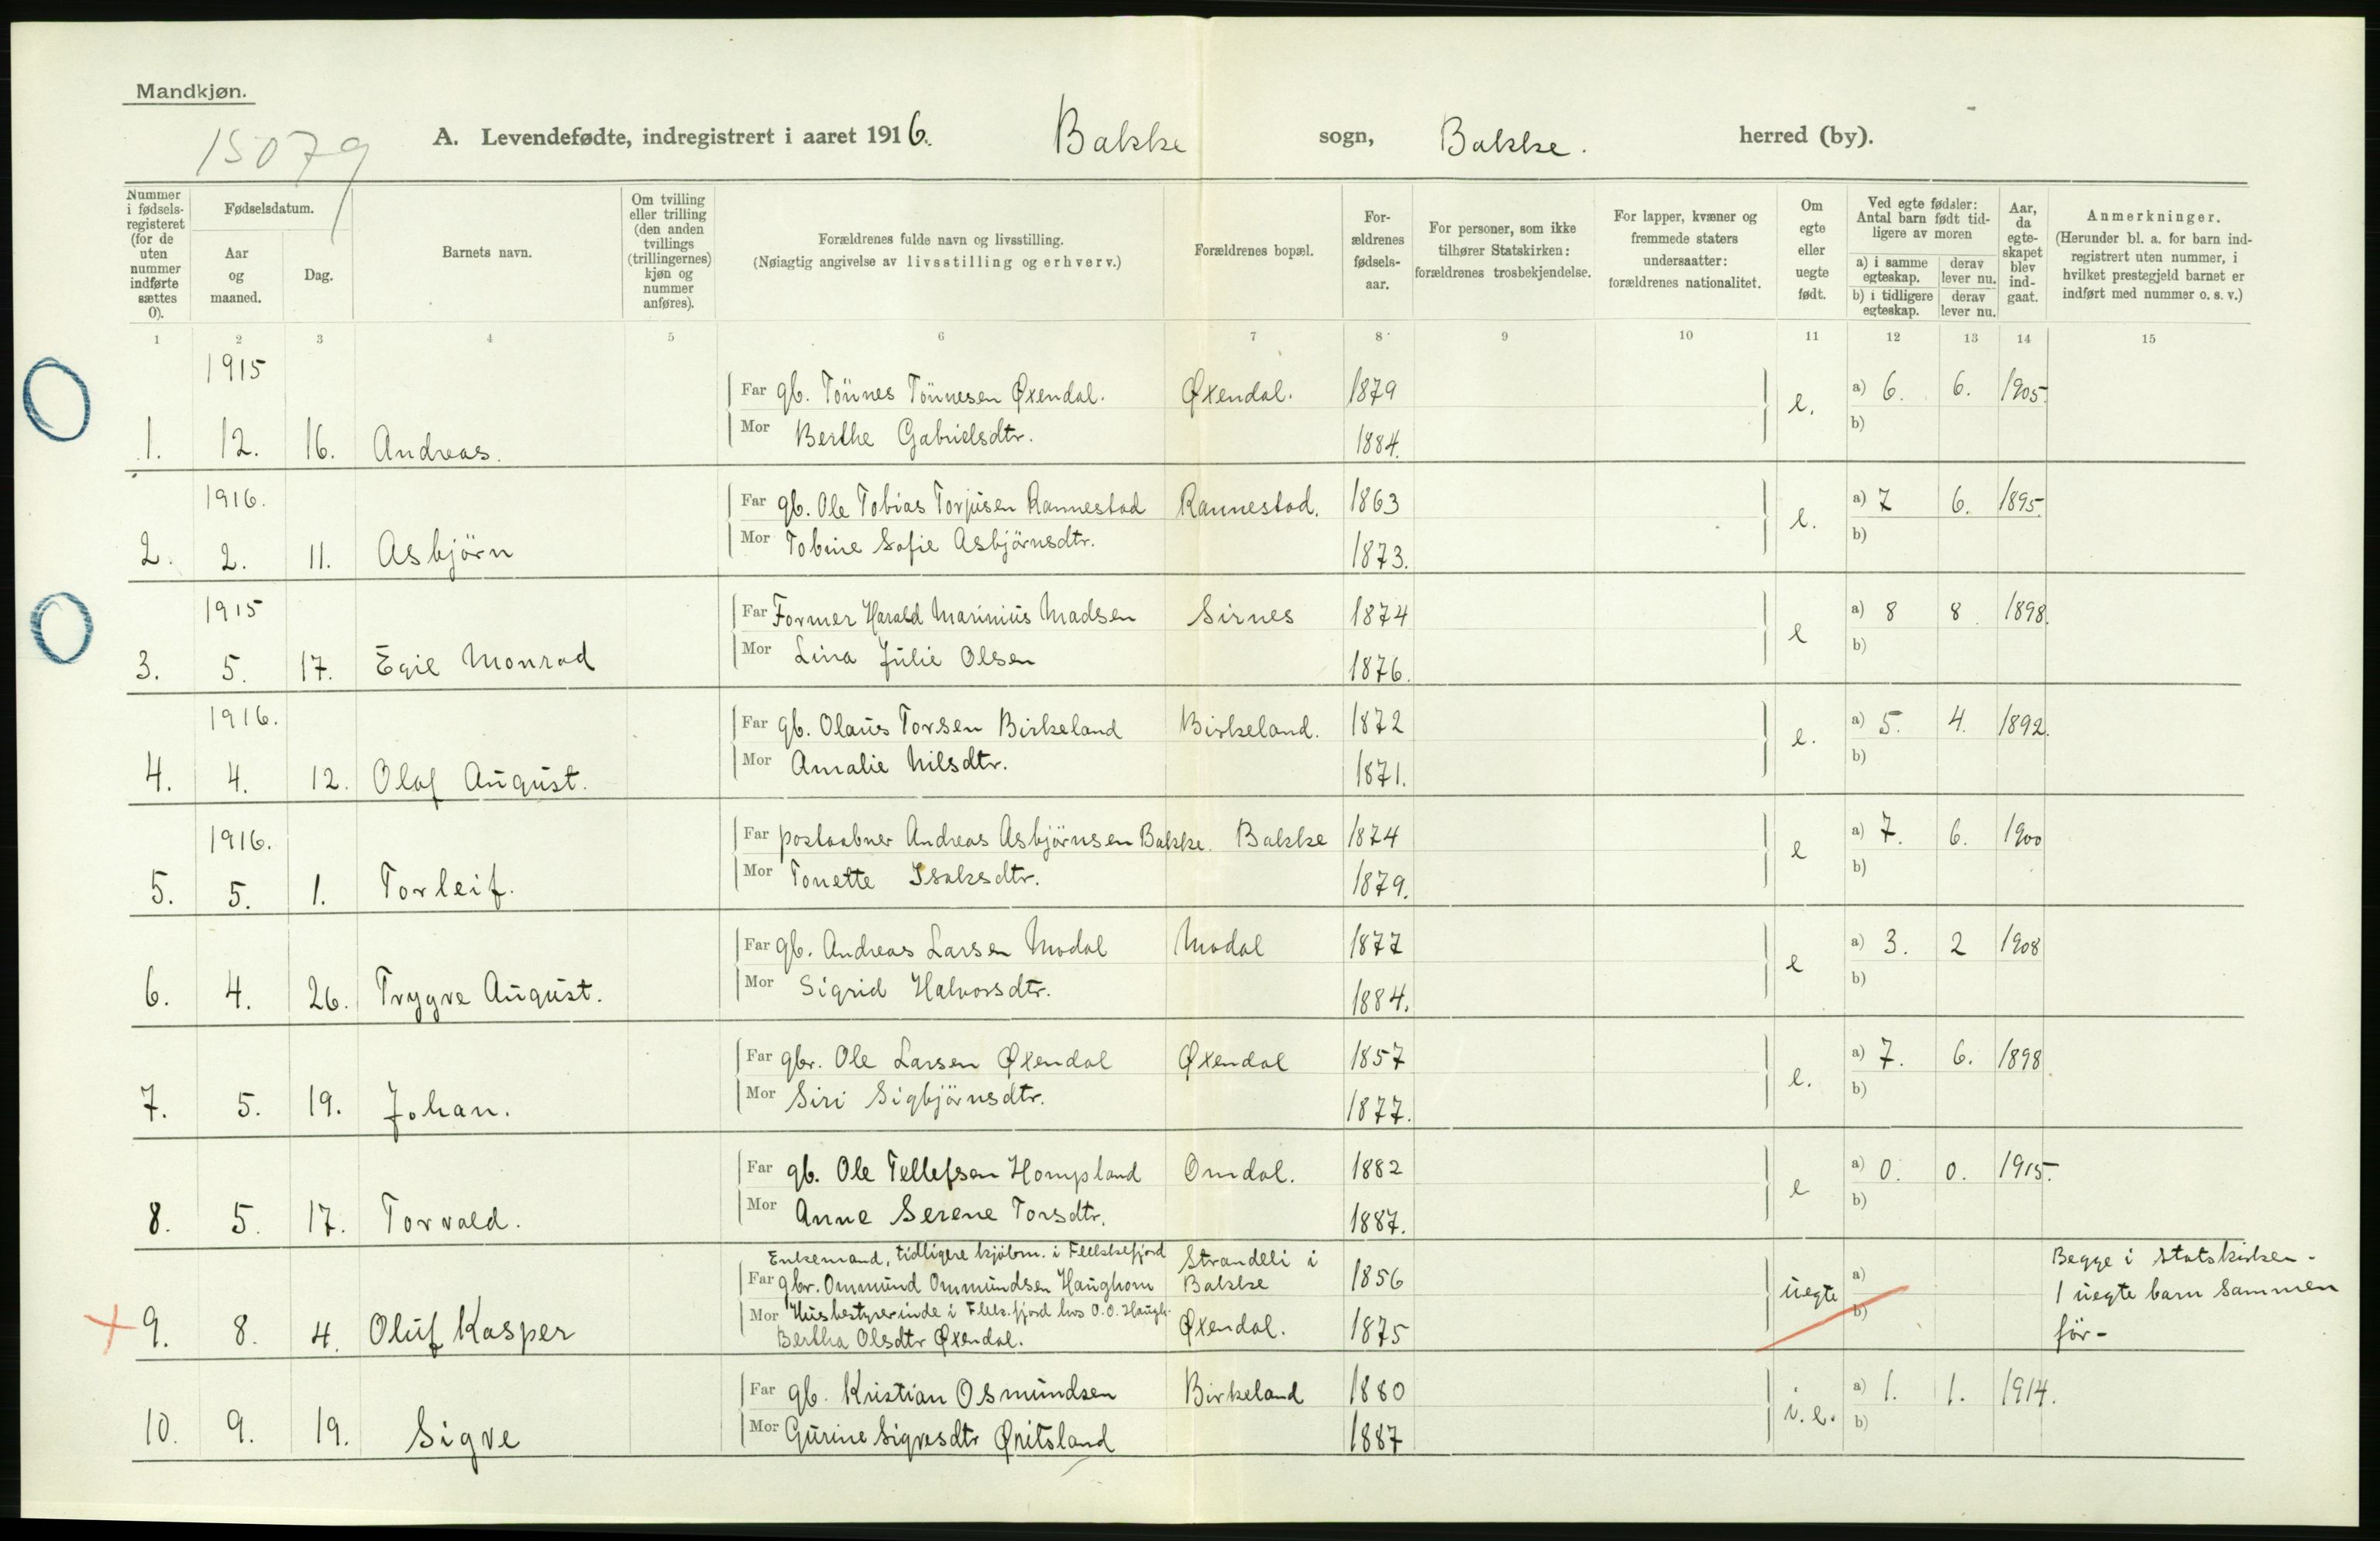 Mandkjøn.
15079
A. Levendefødte, indregistrert i aaret 1916. Bakke sogn, Bakke. herred (by).
Nummer i fødsels-registeret (for de uten nummer indførte sættes 0).
Fødselsdatum.
Aar og maaned.
Dag.
Barnets navn.
Om tvilling eller trilling (den anden tvillings (trillingernes) kjøn og nummer anføres).
Forældrenes fulde navn og livsstilling.
(Nøiagtig angivelse av livsstilling og erhverv.)
Forældrenes bopæl.
For-ældrenes fødsels-aar.
For personer, som ikke tilhører Statskirken: forældrenes trosbekjendelse.
For lapper, kvæner og fremmede staters undersaatter: forældrenes nationalitet.
Om egte eller uegte født.
Ved egte fødsler: Antal barn født tid-ligere av moren
a) i samme egteskap.
derav lever nu.
b) i tidligere egteskap.
derav lever nu.
Aar, da egte-skapet blev ind-gaat.
Anmerkninger.
(Herunder bl. a. for barn ind-registrert uten nummer, i hvilket prestegjeld barnet er indført med nummer o. s. v.)
1 2 3 4 5 6 7 8 9 10 11 12 13 14 15
1915
Far gb. Tönnes Tönnesen Øxendal. Øxendal. 1879 e. a) 6. 6. 1905.
1. 12. 16. Andreas. Mor Berthe Gabrielsdtr. 1884. b)
1916.
Far gb. Ole Tobias Torjusen Rannestad Rannestad. 1863 e. a) 7 6. 1895.
2. 2. 11. Asbjörn Mor Tobine Sofie Asbjörnsdtr. 1873. b)
1915
Far Former Harald Marinius Madsen Sirnes 1874 e a) 8 8. 1898.
3. 5. 17. Egil Monrad Mor Lina Julie Olsen 1876. b)
1916.
Far gb. Olaus Torsen Birkeland Birkeland. 1872 e. a) 5. 4. 1892.
4. 4. 12. Olaf August. Mor Amalie Nilsdtr. 1871. b)
1916.
Far postaabner Andreas Asbjörnsen Bakke. Bakke 1874 e a) 7. 6. 1900
5. 5. 1. Torleif. Mor Tonette Isaksdtr. 1879. b)
Far gb. Andreas Larsen Modal Modal 1877 e a) 3. 2 1908
6. 4. 26. Trygve August. Mor Sigrid Halvorsdtr. 1884. b)
Far gbr. Ole Larsen Øxendal Øxendal 1857 e. a) 7. 6. 1898.
7. 5. 19. Johan. Mor Siri Sigbjörnsdtr. 1877. b)
Far gb. Ole Tellefsen Hompland Omdal. 1882 e a) 0. 0. 1915.
8. 5. 17. Torvald. Mor Anne Serene Torsdtr. 1887. b)
Enkemand, tidligere kjöbm. i Flekkefjord Strandeli i Begge i statskirken -
Far gbr. Ommund Ommundsen Haughom Bakke 1856 uegte a) 1 uegte barn sammen
Mor Husbestyrerinde i Flekkfjord hos O. O. Haugh. b) för -
9. 8. 4. Oluf Kasper Bertha Olsdtr Øxendal. Øxendal. 1875
Far gb. Kristian Osmundsen Birkeland 1880 i. e. a) 1. 1. 1914.
10. 9. 19. Sigve Mor Gurine Sigvesdtr 1887 b)